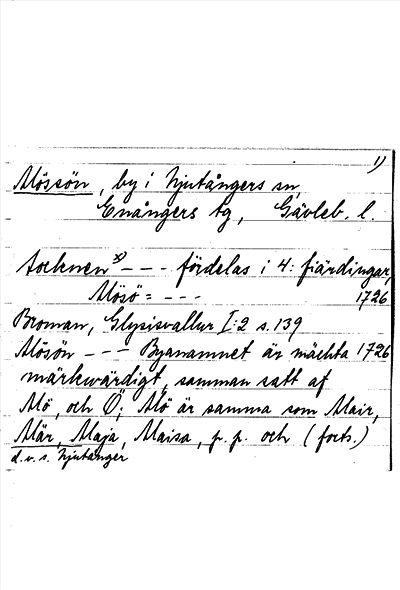 1)
Mössön, by i Njutångers sn,
Enångers tg, Gävleb. l.
Socknen x) - - - fördelas i 4: fiärdingar,
Mösö = - - - 1726
Broman, Glysisvallur I:2 s. 139
Mösön - - - Byanamnet är mächta 1726
märkwärdigt, samman satt af
Mö, och Ö; Mö är samma som Mair,
Mär, Maja, Maisa, p. p. och (forts.)
d. v. s. Njutånger